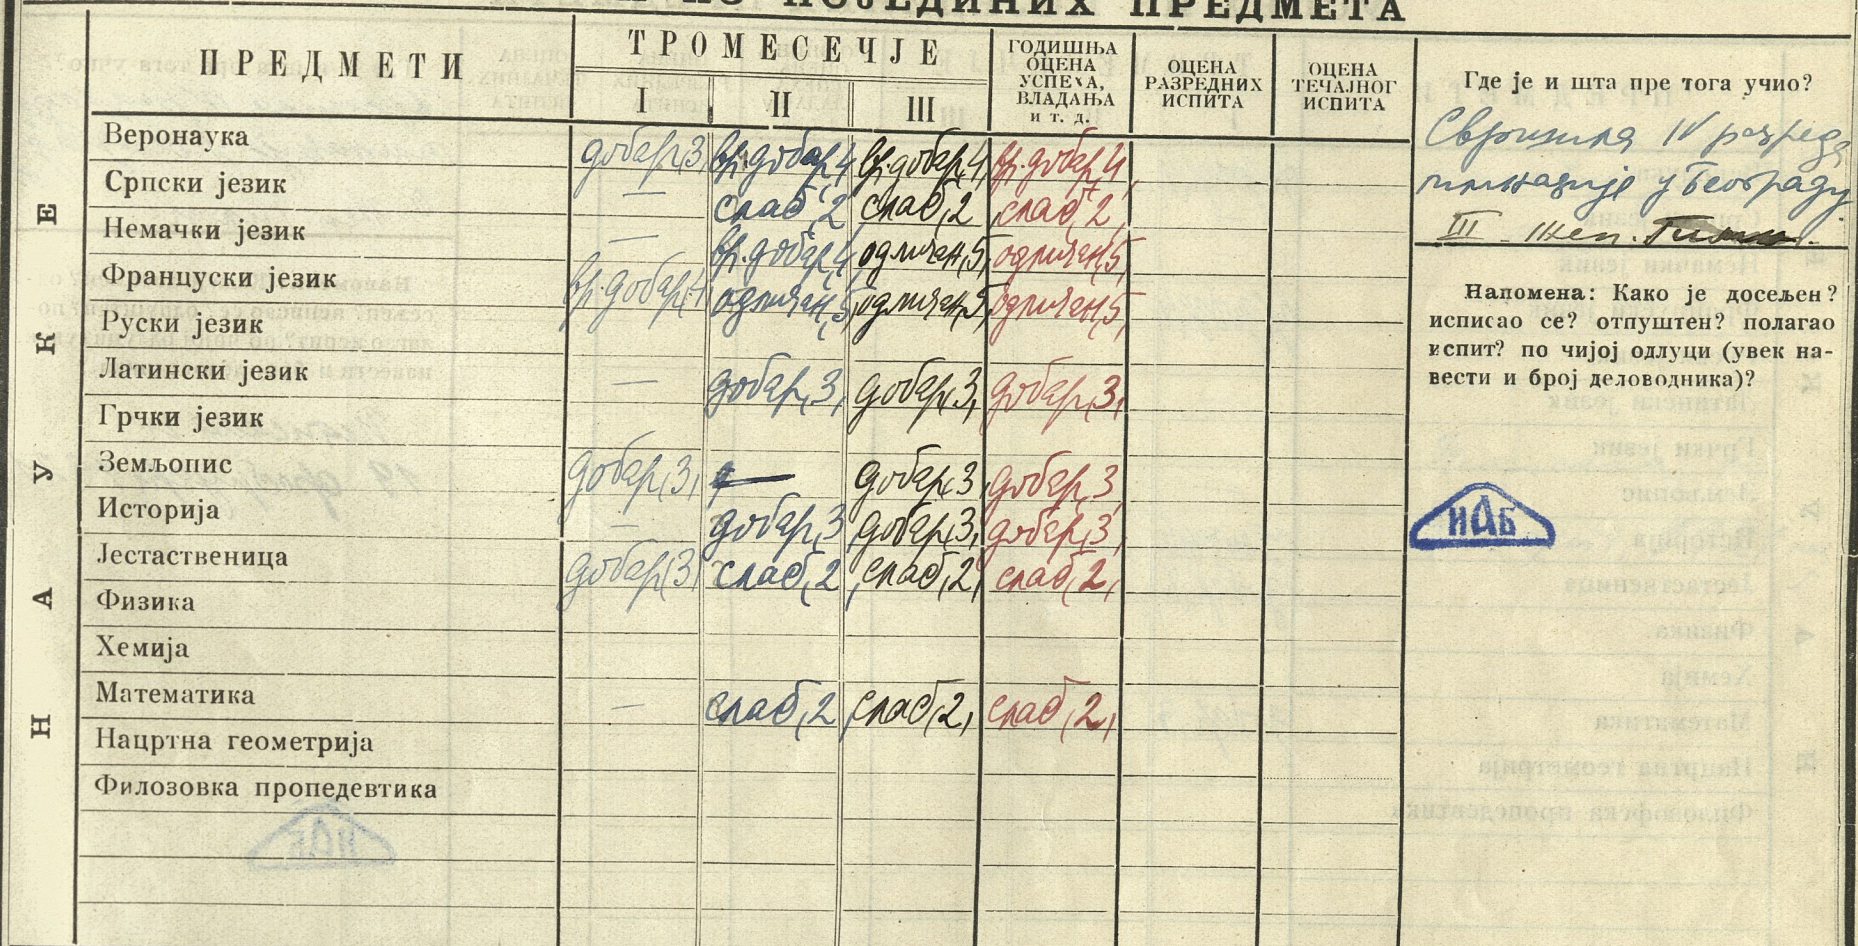 ПОЈЕДИНИХ ПРЕДМЕТА
ПРЕДМЕТИ
ТРОМЕСЕЧЈЕ
I II III
ГОДИШЊА ОЦЕНА УСПЕХА, ВЛАДАЊА и т. д.
ОЦЕНА РАЗРЕДНИХ ИСПИТА
ОЦЕНА ТЕЧАЈНОГ ИСПИТА
НАУКЕ
Веронаука добар,3, вр.добар,4, вр.добар,4, вр.добар,4,
Српски језик — слаб,2, слаб,2, слаб,2,
Немачки језик — вр.добар,4, одличан,5, одличан,5,
Француски језик вр.добар,4, одличан,5, одличан,5, одличан,5,
Руски језик
Латински језик — добар,3, добар,3, добар,3,
Грчки језик
Земљопис добар,3, добар,3, добар,3,
Историја — добар,3, добар,3, добар,3,
Јестаственица добар,3, слаб,2, слаб,2, слаб,2,
Физика
Хемија
Математика — слаб,2, слаб,2, слаб,2,
Нацртна геометрија
Филозовка пропедевтика
Где је и шта пре тога учио?
Свршила IV разреда
гимназије у Београду
III жен.
Напомена: Како је досељен?
исписао се? отпуштен? полагао
испит? по чијој одлуци (увек на-
вести и број деловодника)?
ИАБ